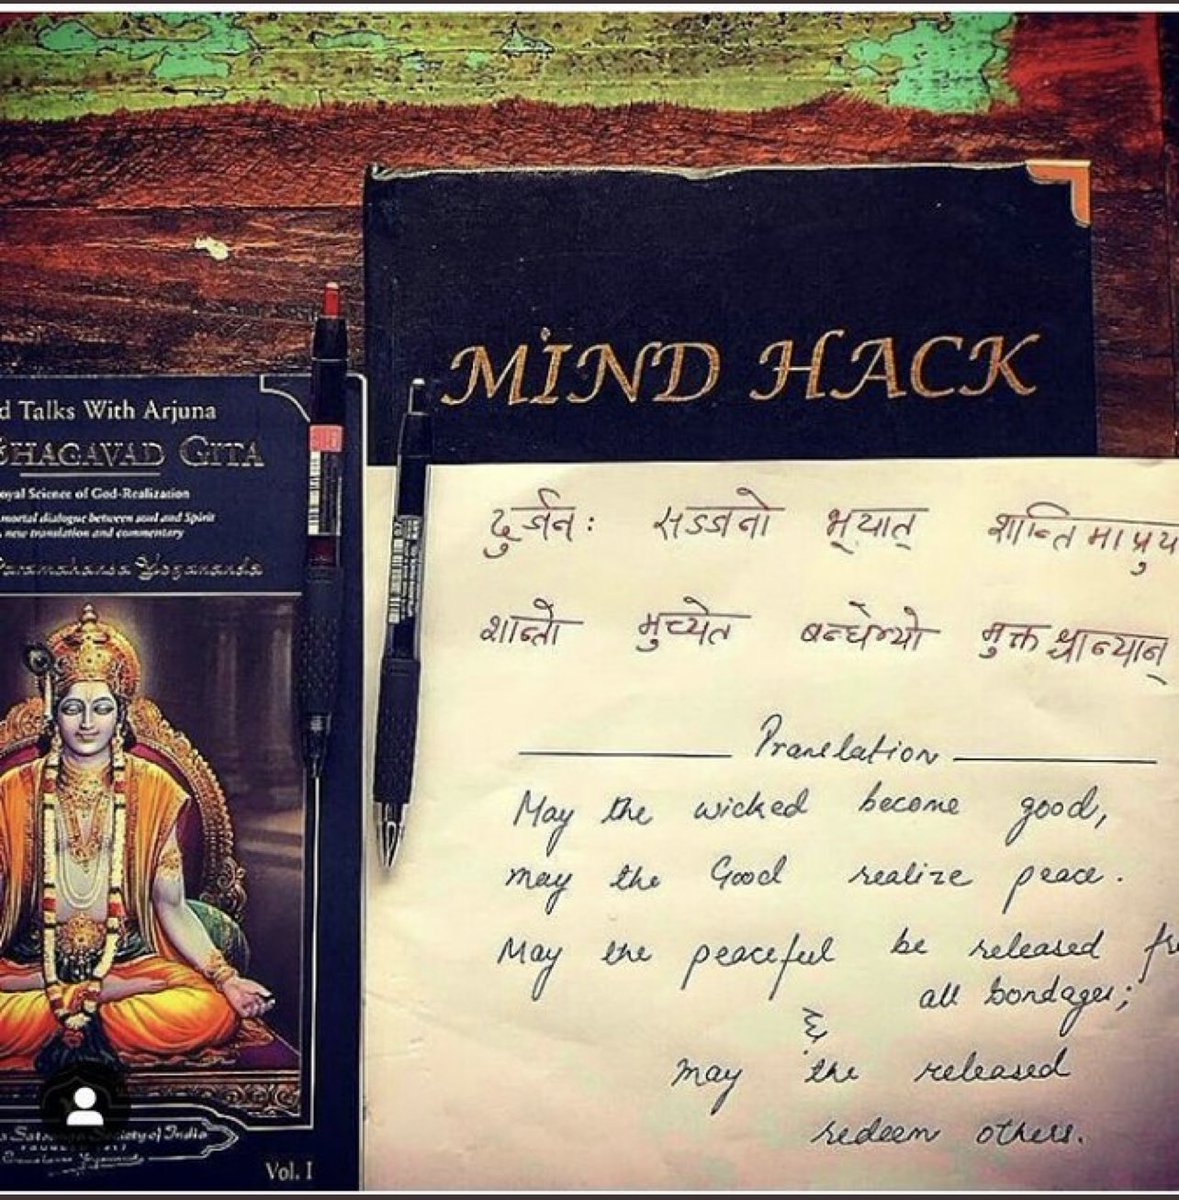 d Talks With Arjuna
BHAGAVAD GITA
oyal Science of God-Realization
mortal dialogue between soul and Spirit
new translation and commentary
Paramahansa Yogananda
Society of India
Vol. I
MIND HACK
दुर्जनः सज्जनो भूयात् शान्तिमाप्नुय
शान्तो मुच्येत बन्धेभ्यो मुक्तश्चान्यान्
Pranslation
May the wicked become good,
may the Good realize peace.
May the peaceful be released fr
all bondages;
&
may the released
redeem others.